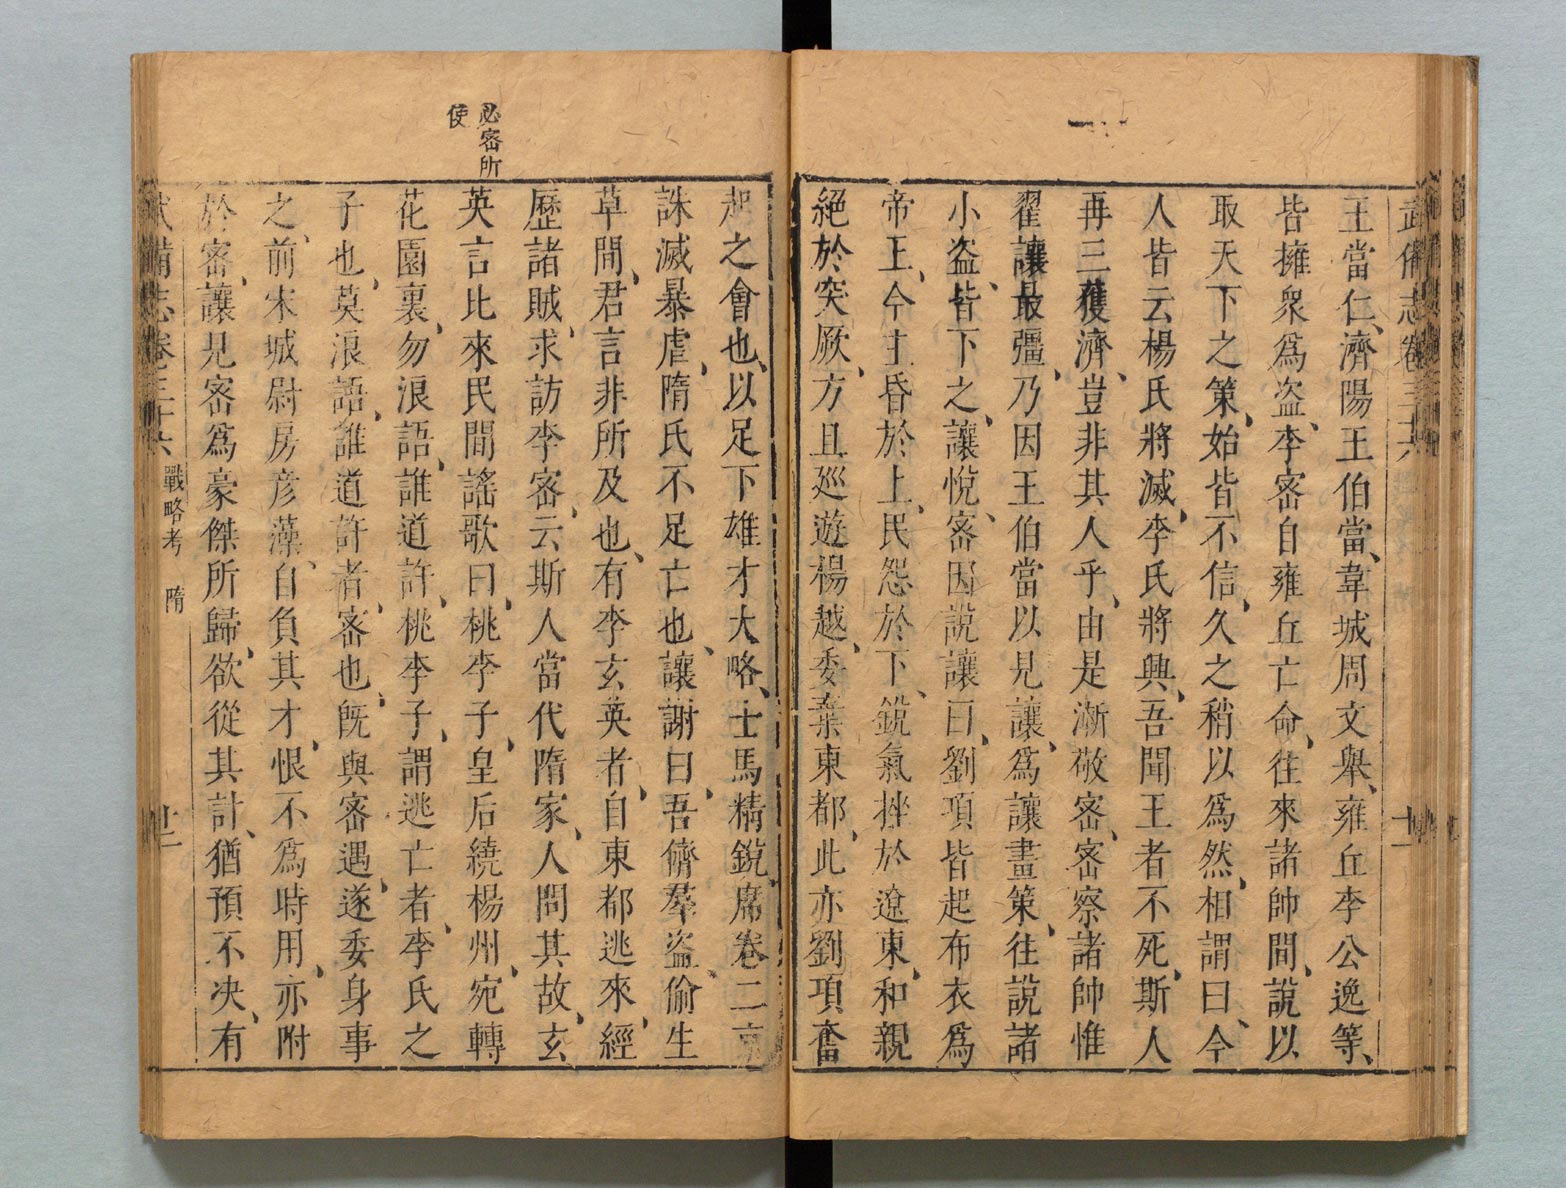 武備志卷三十六
十一
王當仁、濟陽王伯當、韋城周文舉、雍丘李公逸等、
皆擁衆爲盜、李密自雍丘亡命、往來諸帥間、說以
取天下之策、始皆不信、久之稍以爲然、相謂曰、今
人皆云楊氏將滅、李氏將興、吾聞王者不死、斯人
再三獲濟、豈非其人乎、由是漸敬密、密察諸帥惟
翟讓最彊、乃因王伯當以見讓、爲讓畫策、往說諸
小盜、皆下之、讓悅、密因說讓曰、劉項皆起布衣爲
帝王、今主昏於上、民怨於下、銳氣挫於遼東、和親
絕於突厥、方且廵遊楊越、委棄東都、此亦劉項奮
起之會也、以足下雄才大略、士馬精銳、席卷二京
誅滅暴虐、隋氏不足亡也、讓謝曰、吾儕羣盜、偷生
草間、君言非所及也、有李玄英者、自東都逃來、經
歷諸賊、求訪李密、云斯人當代隋家、人問其故、玄
必密所
使
英言比來民間謠歌曰、桃李子、皇后繞楊州、宛轉
花園裏、勿浪語、誰道許、桃李子、謂逃亡者、李氏之
子也、莫浪語、誰道許者、密也、旣與密遇、遂委身事
之、前宋城尉房彥藻、自負其才、恨不爲時用、亦附
於密、讓見密爲豪傑所歸、欲從其計、猶預不决、有
武備志卷三十六 戰略考 隋